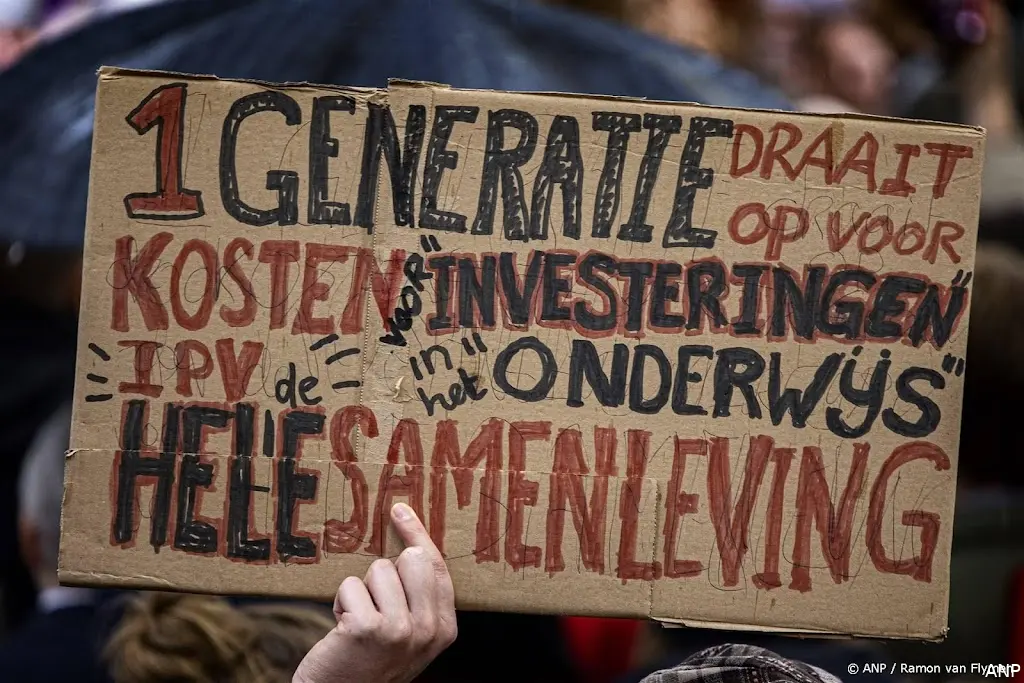 1 GENERATIE DRAAIT
OP VOOR
KOSTEN VOOR "INVESTERINGEN"
IPV de "in het "ONDERWIJS"
HELE SAMENLEVING
© ANP / Ramon van Flymen
ANP